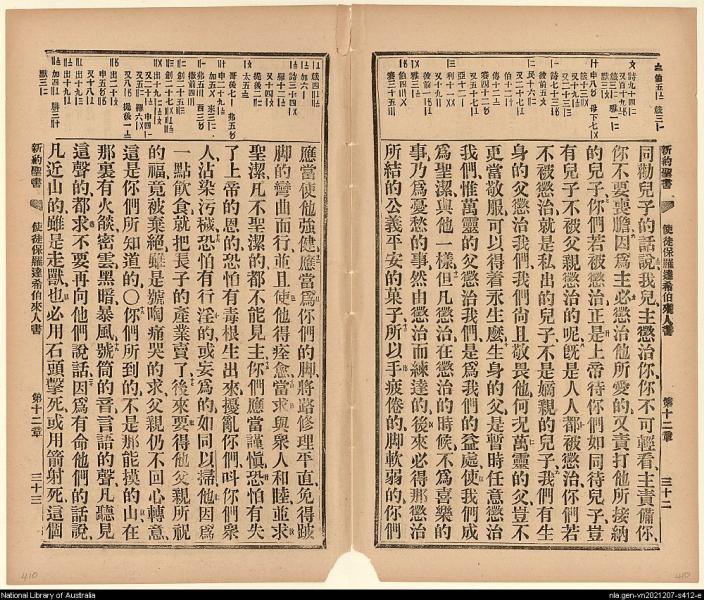 新約聖書
使徒保羅達希伯來人書
第十二章
三十二
同勸兒子的話說我兒主懲治你你不可輕看主責備你
你不要喪膽因爲主必懲治他所愛的又責打他所接納
的兒子你們若被懲治正是上帝待你們如同待兒子豈
有兒子不被父親懲治的呢旣是人人都被懲治你們若
不被懲治就是私出的兒子不是嫡親的兒子我們有生
身的父懲治我們我們尙且敬畏他何况萬靈的父豈不
更當敬服可以得着永生麽生身的父是暫時任意懲治
我們惟萬靈的父懲治我們是爲我們的益處使我們成
爲聖潔與他一樣但凡懲治在懲治的時候不爲喜樂的
事乃爲憂愁的事然由懲治而練達的後來必得那懲治
所結的公義平安的菓子所以手疲倦的脚軟弱的你們
應當使他強健應當爲你們的脚將路修理平直免得跛
脚的彎曲而行並且使他得痊愈當求與衆人和睦並求
聖潔凡不聖潔的都不能見主你們應當謹愼恐怕有失
了上帝的恩的恐怕有毒根生出來擾亂你們呌你們衆
人沾染污穢恐怕有行淫的或妄爲的如同以掃他因爲
一點飲食就把長子的產業賣了後來要得他父親所祝
的福竟被棄絕雖是號啕痛哭的求父親仍不回心轉意
這是你們所知道的〇你們所到的不是那能摸的山在
那裏有火燄密雲黑暗暴風號筒的聲音言語的聲凡聽見
這聲的都求不要再向他們說話因爲有命他們的話說
凡近山的雖是走獸也必用石頭擊死或用箭射死這個
新約聖書
使徒保羅達希伯來人書
第十二章
三十三
410
410
National Library of Australia
nla.gen-vn2021207-s412-e